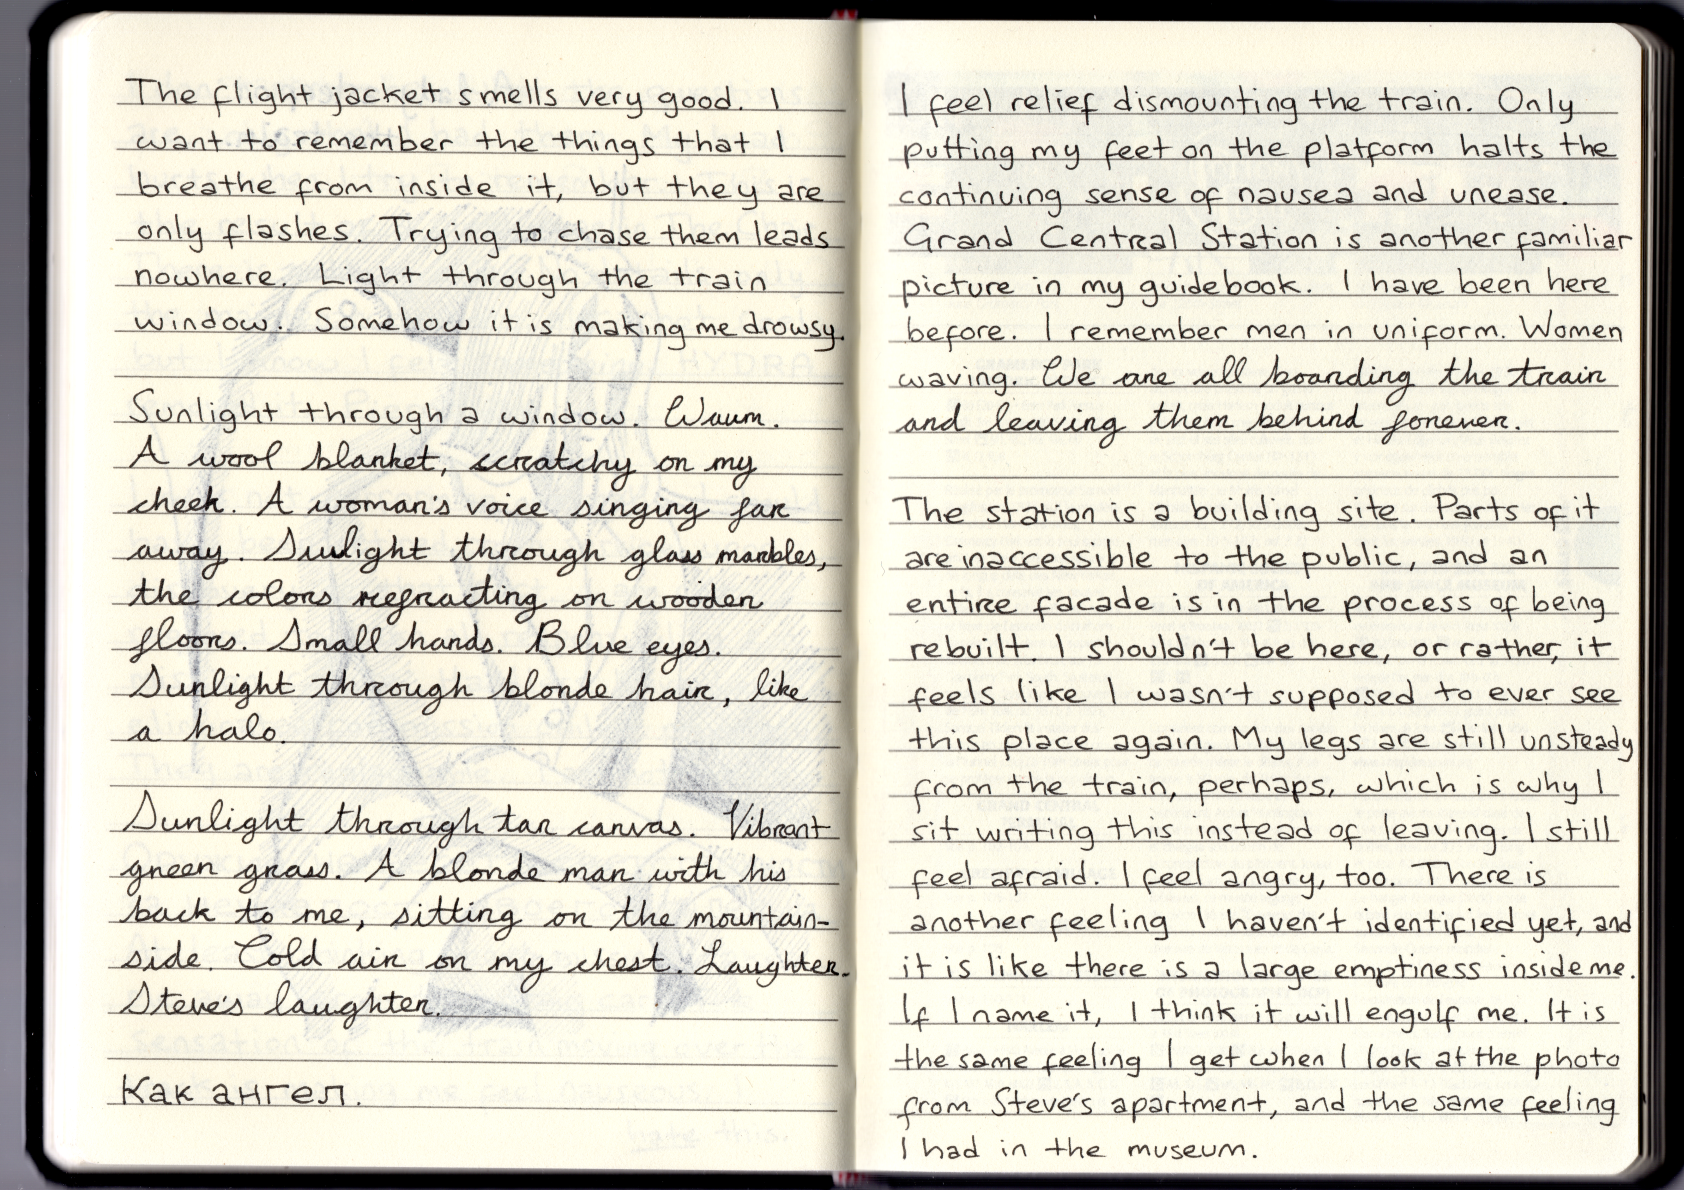 The flight jacket smells very good. I
want to remember the things that I
breathe from inside it, but they are
only flashes. Trying to chase them leads
nowhere. Light through the train
window. Somehow it is making me drowsy.
Sunlight through a window. Warm.
A wool blanket, scratchy on my
cheek. A woman's voice singing far
away. Sunlight through glass marbles,
the colors refracting on wooden
floors. Small hands. Blue eyes.
Sunlight through blonde hair, like
a halo.
Sunlight through tan canvas. Vibrant
green grass. A blonde man with his
back to me, sitting on the mountain-
side. Cold air on my chest. Laughter.
Steve's laughter.
Как ангел.
I feel relief dismounting the train. Only
putting my feet on the platform halts the
continuing sense of nausea and unease.
Grand Central Station is another familiar
picture in my guidebook. I have been here
before. I remember men in uniform. Women
waving. We are all boarding the train
and leaving them behind forever.
The station is a building site. Parts of it
are inaccessible to the public, and an
entire facade is in the process of being
rebuilt. I shouldn't be here, or rather, it
feels like I wasn't supposed to ever see
this place again. My legs are still unsteady
from the train, perhaps, which is why I
sit writing this instead of leaving. I still
feel afraid. I feel angry, too. There is
another feeling I haven't identified yet, and
it is like there is a large emptiness inside me.
If I name it, I think it will engulf me. It is
the same feeling I get when I look at the photo
from Steve's apartment, and the same feeling
I had in the museum.